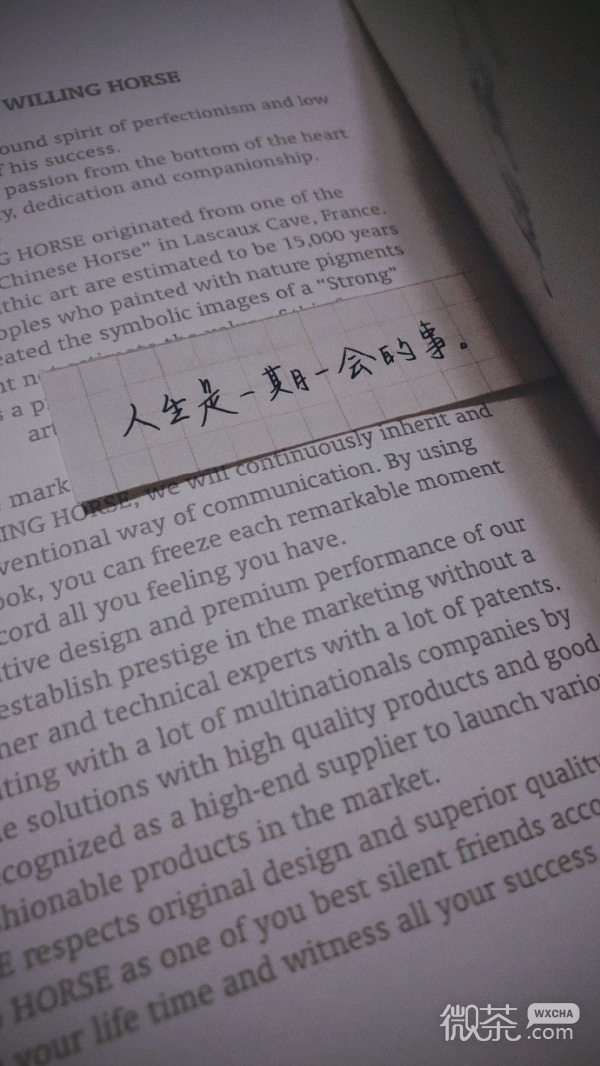 WILLING HORSE
ound spirit of perfectionism and low
f his success.
passion from the bottom of the heart
y, dedication and companionship.
G HORSE originated from one of the
Chinese Horse" in Lascaux Cave, France.
thic art are estimated to be 15,000 years
oples who painted with nature pigments
eated the symbolic images of a "Strong"
人生是一期一会的事。
s a p
art
mark
ING HORSE, we will continuously inherit and
ventional way of communication. By using
ook, you can freeze each remarkable moment
cord all you feeling you have.
tive design and premium performance of our
establish prestige in the marketing without a
ner and technical experts with a lot of patents.
ting with a lot of multinationals companies by
e solutions with high quality products and good
cognized as a high-end supplier to launch variou
shionable products in the market.
E respects original design and superior quality
G HORSE as one of you best silent friends acco
your life time and witness all your success
微茶 WXCHA
.com